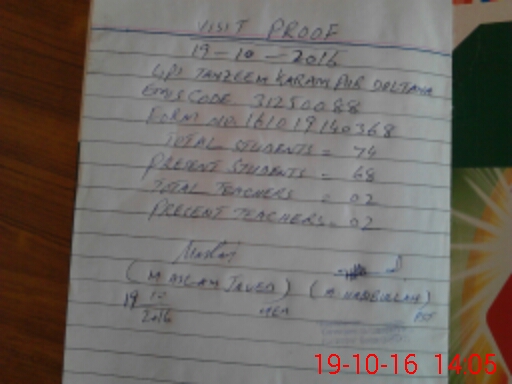 VISIT PROOF
19-10-2016
GPS TANZEEM KARAM PUR DOLTANA
EMIS CODE 31250088
FORM NO. 161019140368
TOTAL STUDENTS = 74
PRESENT STUDENTS = 68
TOTAL TEACHERS = 02
PRESENT TEACHERS = 02
(M ASLAM JAVED) (M. HABIBULLAH)
19 10
2016 MEA
19-10-16 14:05